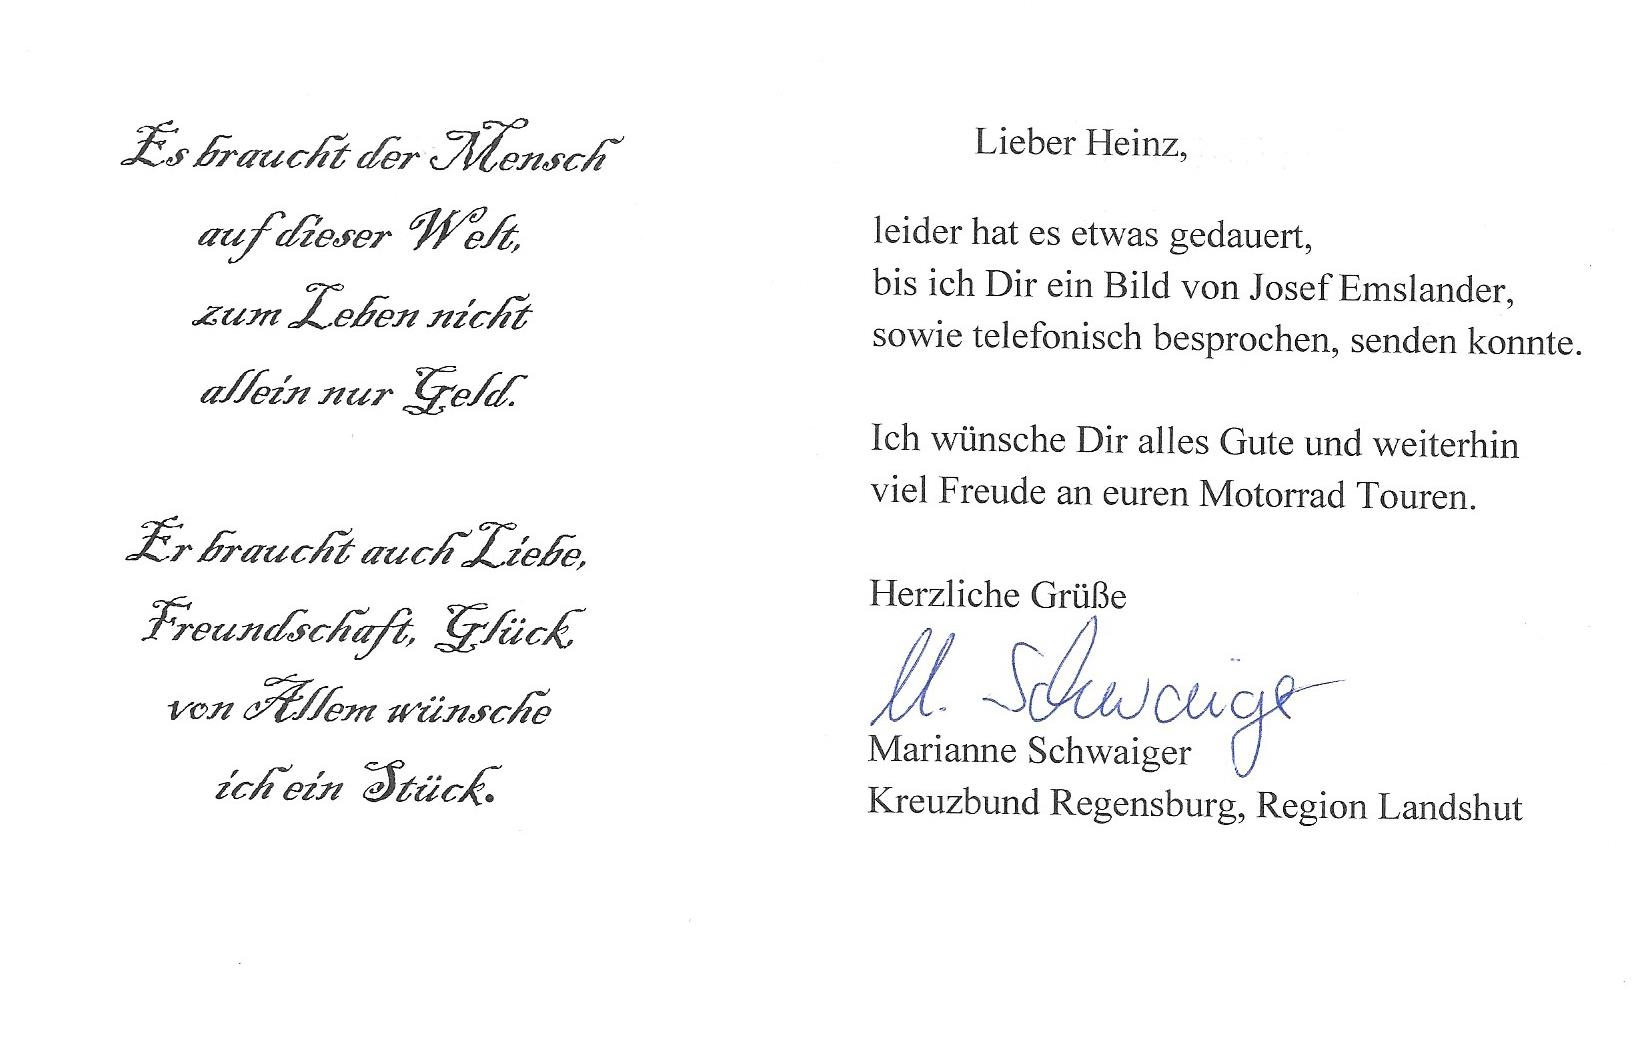 Es braucht der Mensch
auf dieser Welt,
zum Leben nicht
allein nur Geld.
Er braucht auch Liebe,
Freundschaft, Glück,
von Allem wünsche
ich ein Stück.
Lieber Heinz,
leider hat es etwas gedauert,
bis ich Dir ein Bild von Josef Emslander,
sowie telefonisch besprochen, senden konnte.
Ich wünsche Dir alles Gute und weiterhin
viel Freude an euren Motorrad Touren.
Herzliche Grüße
M. Schwaiger
Marianne Schwaiger
Kreuzbund Regensburg, Region Landshut